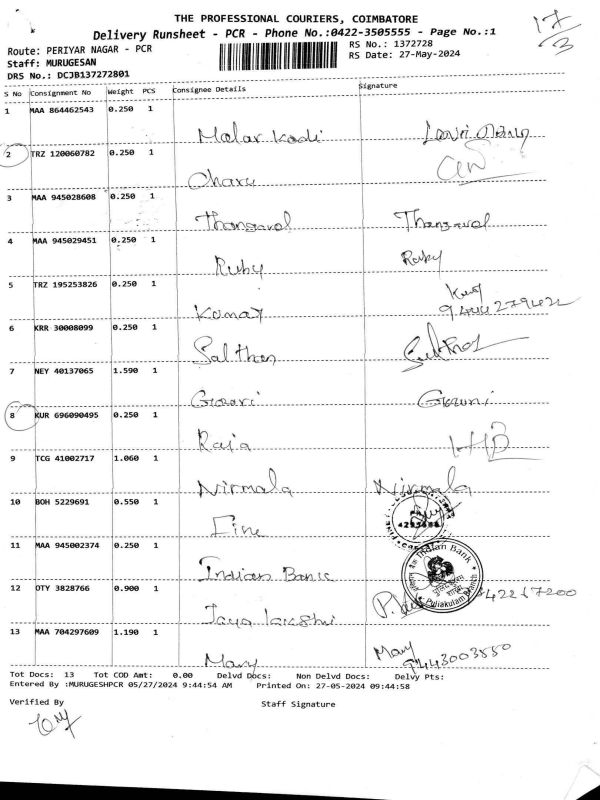 THE PROFESSIONAL COURIERS, COIMBATORE
17/3
Delivery Runsheet - PCR - Phone No.:0422-3505555 - Page No.:1
Route: PERIYAR NAGAR - PCR
RS No.: 1372728
Staff: MURUGESAN
RS Date: 27-May-2024
DRS No.: DCJB137272801
S No Consignment No Weight PCS Consignee Details Signature
1 MAA 864462543 0.250 1
Malar Kodi
2 TRZ 120060782 0.250 1
Charu
3 MAA 945028608 0.250 1
Thangavel Thangavel
4 MAA 945029451 0.250 1
Ruby Ruby
5 TRZ 195253826 0.250 1
Kumar
6 KRR 30008099 0.250 1
Salthan
7 NEY 40137065 1.590 1
Gowri Gowri
8 KUR 696090495 0.250 1
Raja
9 TCG 41002717 1.060 1
Nirmala Nirmala
10 BOH 5229691 0.550 1
Fine
11 MAA 945002374 0.250 1
Indian Bank
Indian Bank
Puliakulam Branch
12 OTY 3828766 0.900 1
Jaya lakshmi
13 MAA 704297609 1.190 1
Mary Mary
9443003550
Tot Docs: 13 Tot COD Amt: 0.00 Delvd Docs: Non Delvd Docs: Delvy Pts:
Entered By :MURUGESHPCR 05/27/2024 9:44:54 AM Printed On: 27-05-2024 09:44:58
Verified By Staff Signature